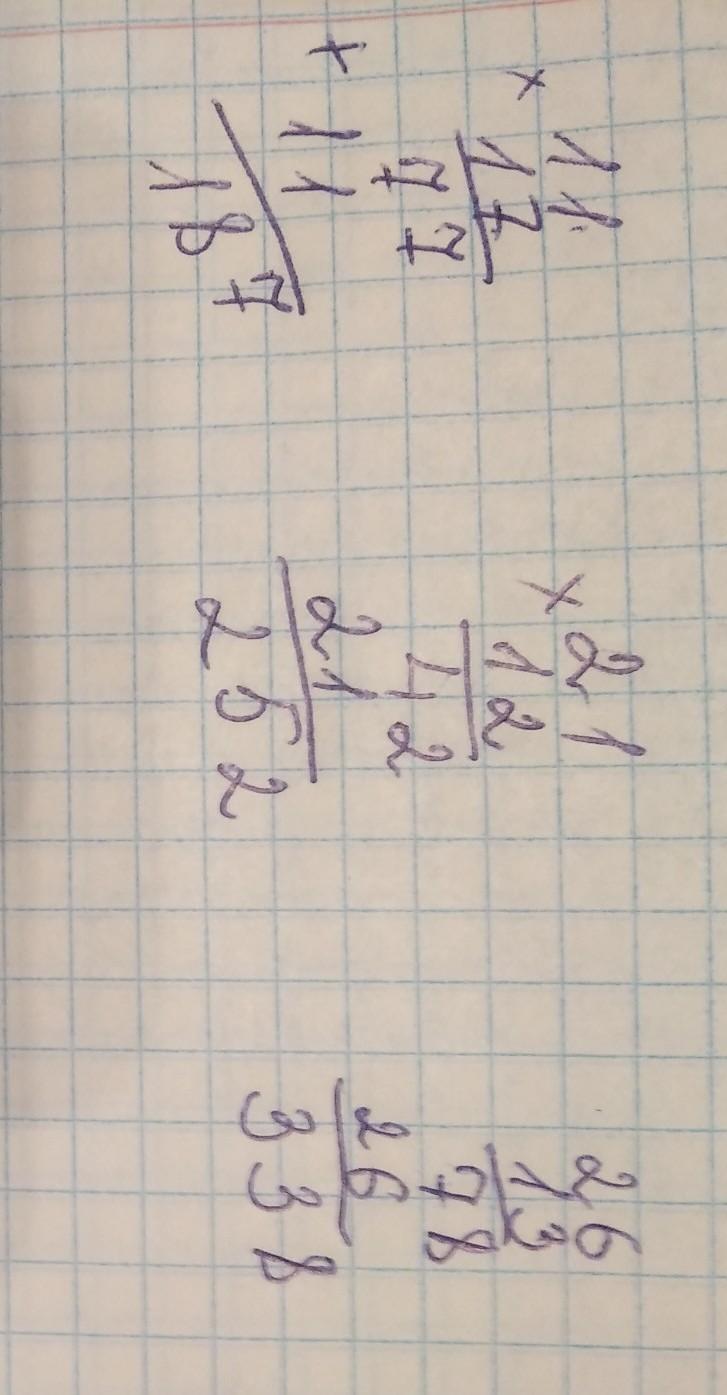 × 11
17
77
+ 11
187
× 21
12
42
21
252
26
13
78
26
338